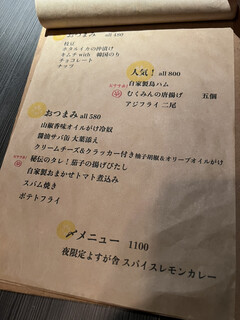 おつまみ all 400
枝豆
ホタルイカの沖漬け
キムチ with 韓国のり
チョコレート
ナッツ
人気! all 800
自家製鳥ハム
むくみんの唐揚げ 五個
アジフライ 二尾
おつまみ all 580
山椒香味オイルがけ冷奴
醤油サバ缶 大葉添え
クリームチーズ&クラッカー付き 柚子胡椒&オリーブオイルがけ
秘伝のタレ!茄子の揚げびたし
自家製おまかせトマト煮込み
スパム焼き
ポテトフライ
〆メニュー 1100
夜限定よすが舎 スパイスレモンカレー